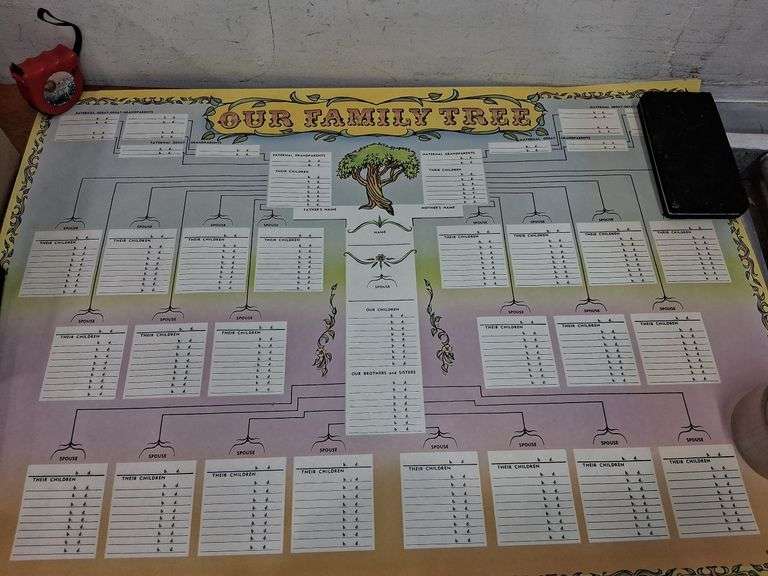 OUR FAMILY TREE
PATERNAL GREAT-GREAT-GRANDPARENTS
MATERNAL GREAT-GREAT-
PATERNAL GREAT-GRANDPARENTS
GRANDPARENTS
PATERNAL GRANDPARENTS
MATERNAL GRANDPARENTS
THEIR CHILDREN
THEIR CHILDREN
FATHER'S NAME
MOTHER'S NAME
NAME
SPOUSE
OUR CHILDREN
OUR BROTHERS and SISTERS
SPOUSE SPOUSE SPOUSE SPOUSE SPOUSE SPOUSE SPOUSE SPOUSE
THEIR CHILDREN THEIR CHILDREN THEIR CHILDREN THEIR CHILDREN THEIR CHILDREN THEIR CHILDREN THEIR CHILDREN THEIR CHILDREN
SPOUSE SPOUSE SPOUSE SPOUSE SPOUSE SPOUSE
THEIR CHILDREN THEIR CHILDREN THEIR CHILDREN THEIR CHILDREN THEIR CHILDREN THEIR CHILDREN
SPOUSE SPOUSE SPOUSE SPOUSE SPOUSE SPOUSE SPOUSE SPOUSE
THEIR CHILDREN THEIR CHILDREN THEIR CHILDREN THEIR CHILDREN THEIR CHILDREN THEIR CHILDREN THEIR CHILDREN THEIR CHILDREN